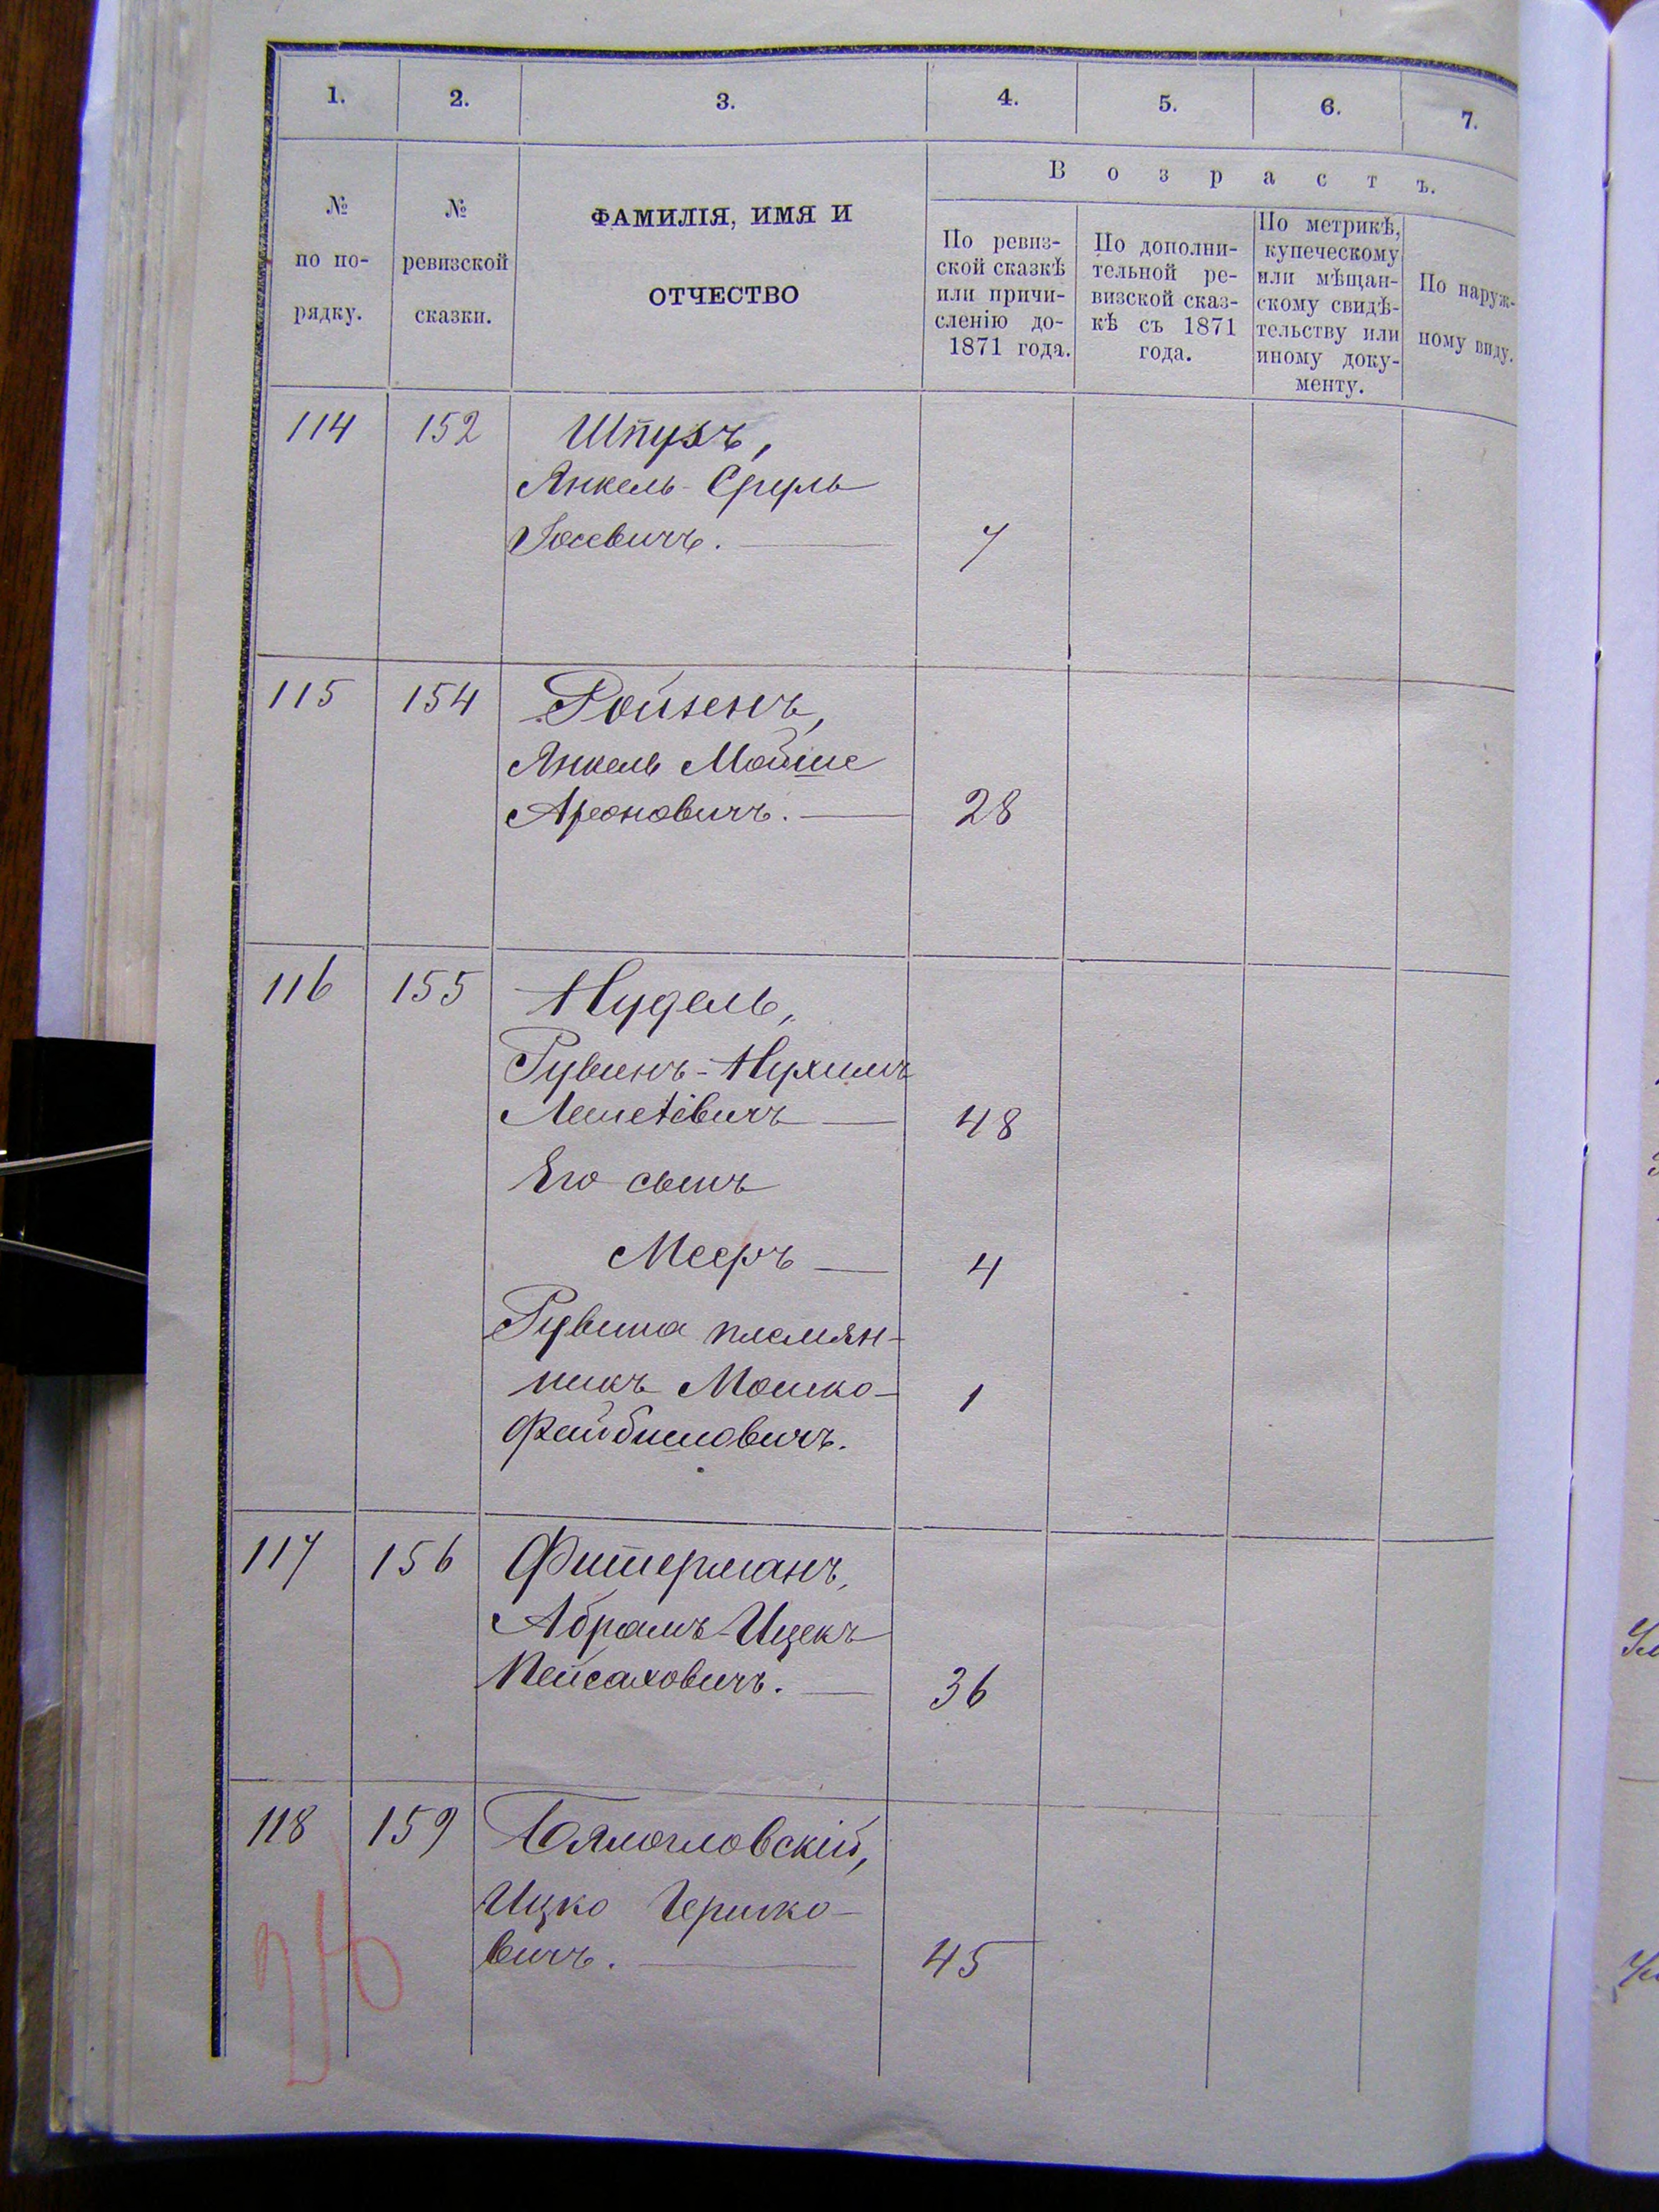 1. 2. 3. 4. 5. 6. 7.
В о з р а с т ъ.
№ по по-рядку.
№ ревизской сказки.
ФАМИЛІЯ, ИМЯ И
ОТЧЕСТВО
По ревиз-
ской сказкѣ
или причи-
сленію до-
1871 года.
По дополни-
тельной ре-
визской сказ-
кѣ съ 1871
года.
По метрикѣ,
купеческому
или мѣщан-
скому свидѣ-
тельству или
иному доку-
менту.
По наруж-
ному виду.
114 152 Шпухъ,
Янкель-Сруль
Іосевичъ. 7
115 154 Ройзенъ,
Янкель Мойше
Ароновичъ. 28
116 155 Нудель,
Рувинъ-Нухимъ
48
Его сынъ
Мееръ 4
Рувина племян-
никъ Мошко- 1
Файбишовичъ.
117 156 Фитерманъ,
Абрамъ-Ицекъ
Пейсаховичъ. 36
118 159 Бялогловскій,
Ицко Гершко-
вичъ. 45